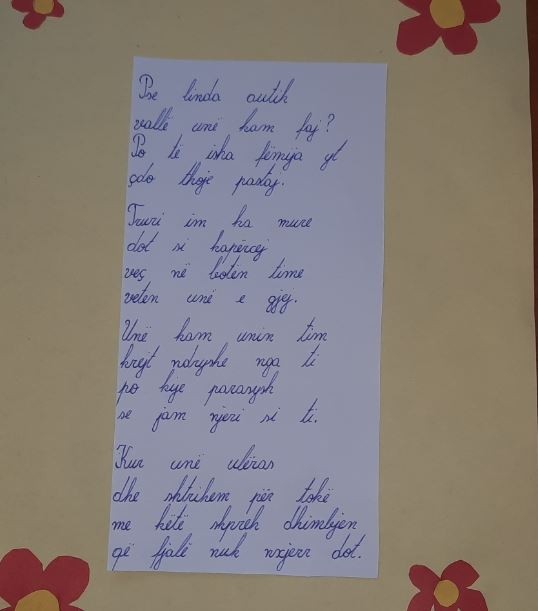 Pse linda autik
vallë unë kam faj?
Po të isha fëmija yt
çdo thoje pastaj.
Truri im ka mure
dot si kapërcej
veç në botën time
veten unë e gjej.
Unë kam unin tim
krejt ndryshe nga ti
po kije parasysh
se jam njeri si ti.
Kur unë ulëras
dhe shtrihem për tokë
me këtë shpreh dhimbjen
që fjalë nuk nxjerr dot.